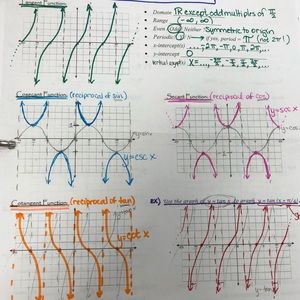 Tangent Function
Domain ℝ except odd multiples of π/2
Range (-∞, ∞)
Even Odd Neither Symmetric to origin
Periodic? Y N If yes, period = π (not 2π!)
x-intercept(s) ..., -π, 0, π, 2π, ...
y-intercept 0
Cosecant Function (reciprocal of sin)
Secant Function (reciprocal of cos)
y=csc x
y=sec x
Cotangent Function (reciprocal of tan)
EX) Use the graph of y = tan x to graph
y=cot x
y=tan x